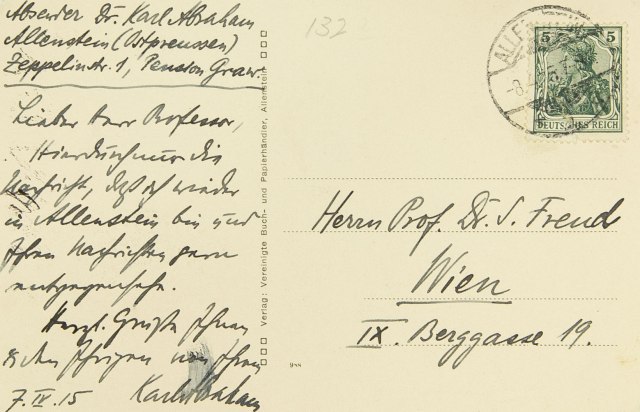 Absender Dr. Karl Abraham
Allenstein (Ostpreussen)
Zeppelinstr. 1, Pension Graw.
Lieber Herr Professor,
Hierdurch nur die
Nachricht, daß ich wieder
in Allenstein bin und
Ihren Nachrichten gern
entgegensehe.
Herzl. Grüße Ihnen
u. den Ihrigen von Ihrem
Karl Abraham
7. IV. 15
Verlag: Vereinigte Buch- und Papierhändler, Allenstein
132
5 5
DEUTSCHES REICH
Herrn Prof. Dr. S. Freud
Wien
IX. Berggasse 19.
988